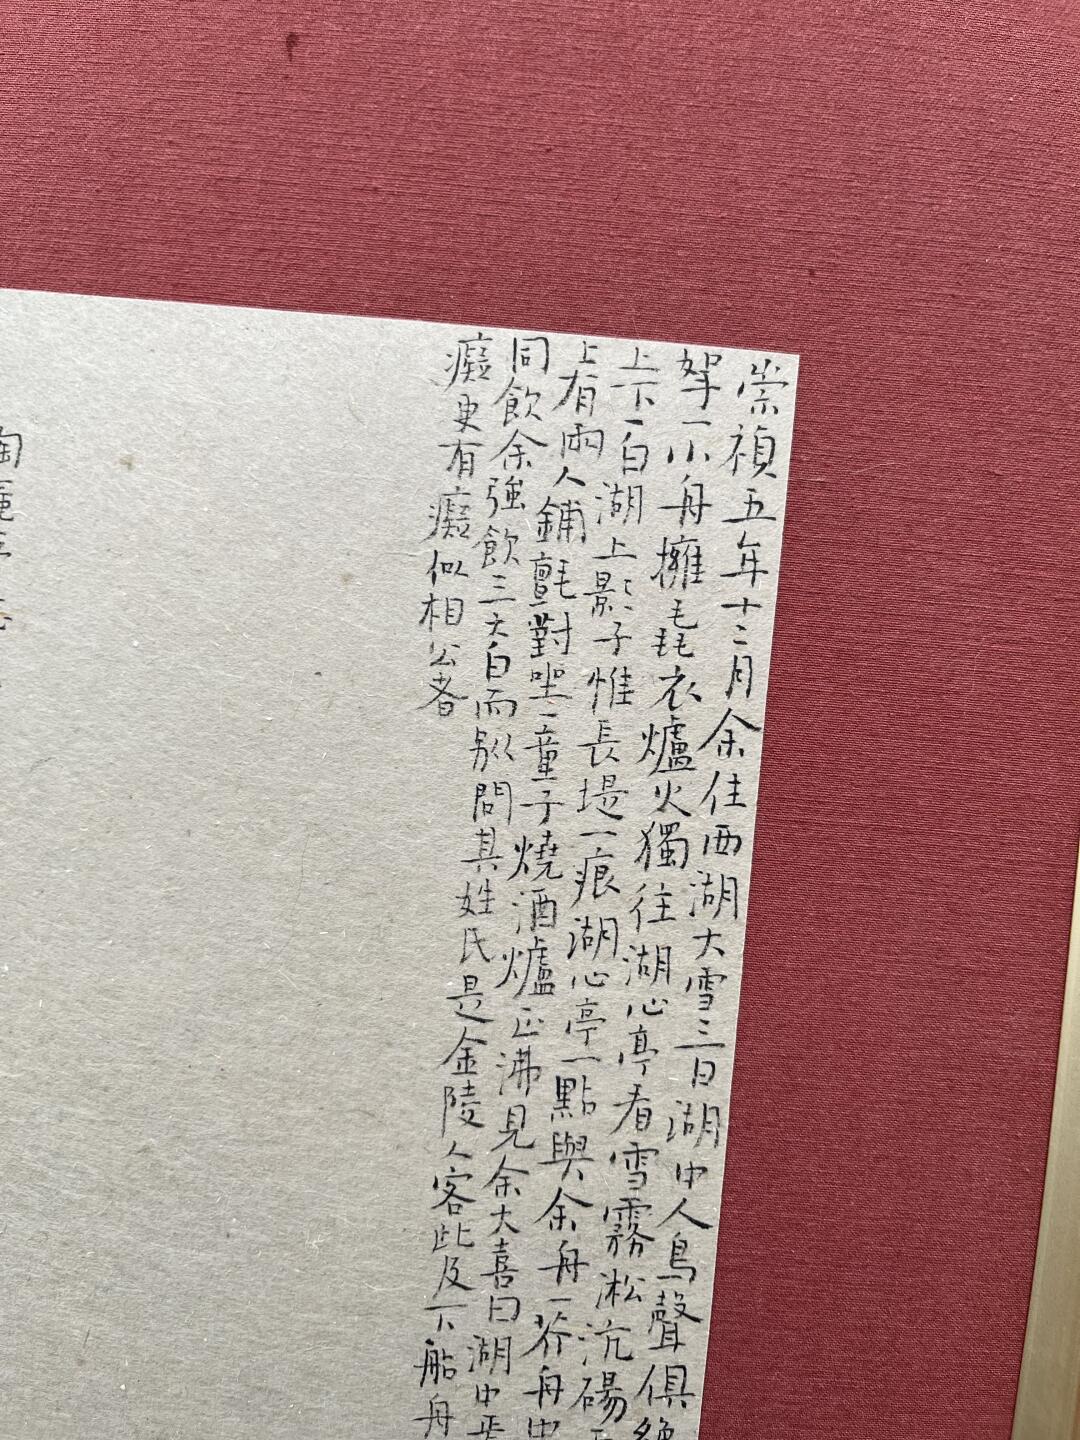 崇禎五年十二月余住西湖大雪三日湖中人鳥聲俱絕
拏一小舟擁毳衣爐火獨往湖心亭看雪霧淞沆碭
上下一白湖上影子惟長堤一痕湖心亭一點與余舟一芥舟中
上有兩人鋪氈對坐一童子燒酒爐正沸見余大喜曰湖中焉
同飲余強飲三大白而別問其姓氏是金陵人客此及下船舟
癡更有癡似相公者